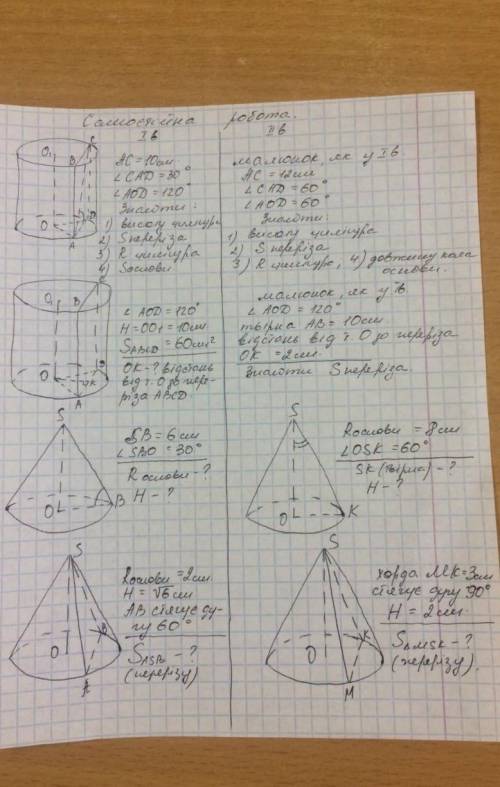 Самостійна робота.
I в
AC = 10см
∠CAD = 30°
∠AOD = 120°
Знайти:
1) висоту циліндра
2) S переріза
3) R циліндра
4) S основи
O₁
B
C
O
A
D
∠AOD = 120°
H = OO₁ = 10см
S ABCD = 60см²
OK - ? відстань
від т. О до пере-
різа ABCD.
O₁
B
C
O
A
K
D
SB = 6см
∠SBO = 30°
R основи - ?
H - ?
S
O
B
R основи = 2см
H = √6 см
AB стягує ду-
гу 60°
S ASB - ?
(перерізу)
S
O
B
A
II в
малюнок, як у I в.
AC = 12см
∠CAD = 60°
∠AOD = 60°
Знайти:
1) висоту циліндра
2) S переріза
3) R циліндра, 4) довжину кола
основи.
малюнок, як у I в.
∠AOD = 120°
твірна AB = 10см.
відстань від т. О до переріза
OK = 2см.
Знайти S переріза.
S
O
K
R основи = 8см
∠OSK = 60°
SK (твірна) - ?
H - ?
S
O
K
M
хорда MK = 3см
стягує дугу 90°
H = 2см.
S ΔMSK - ?
(перерізу).